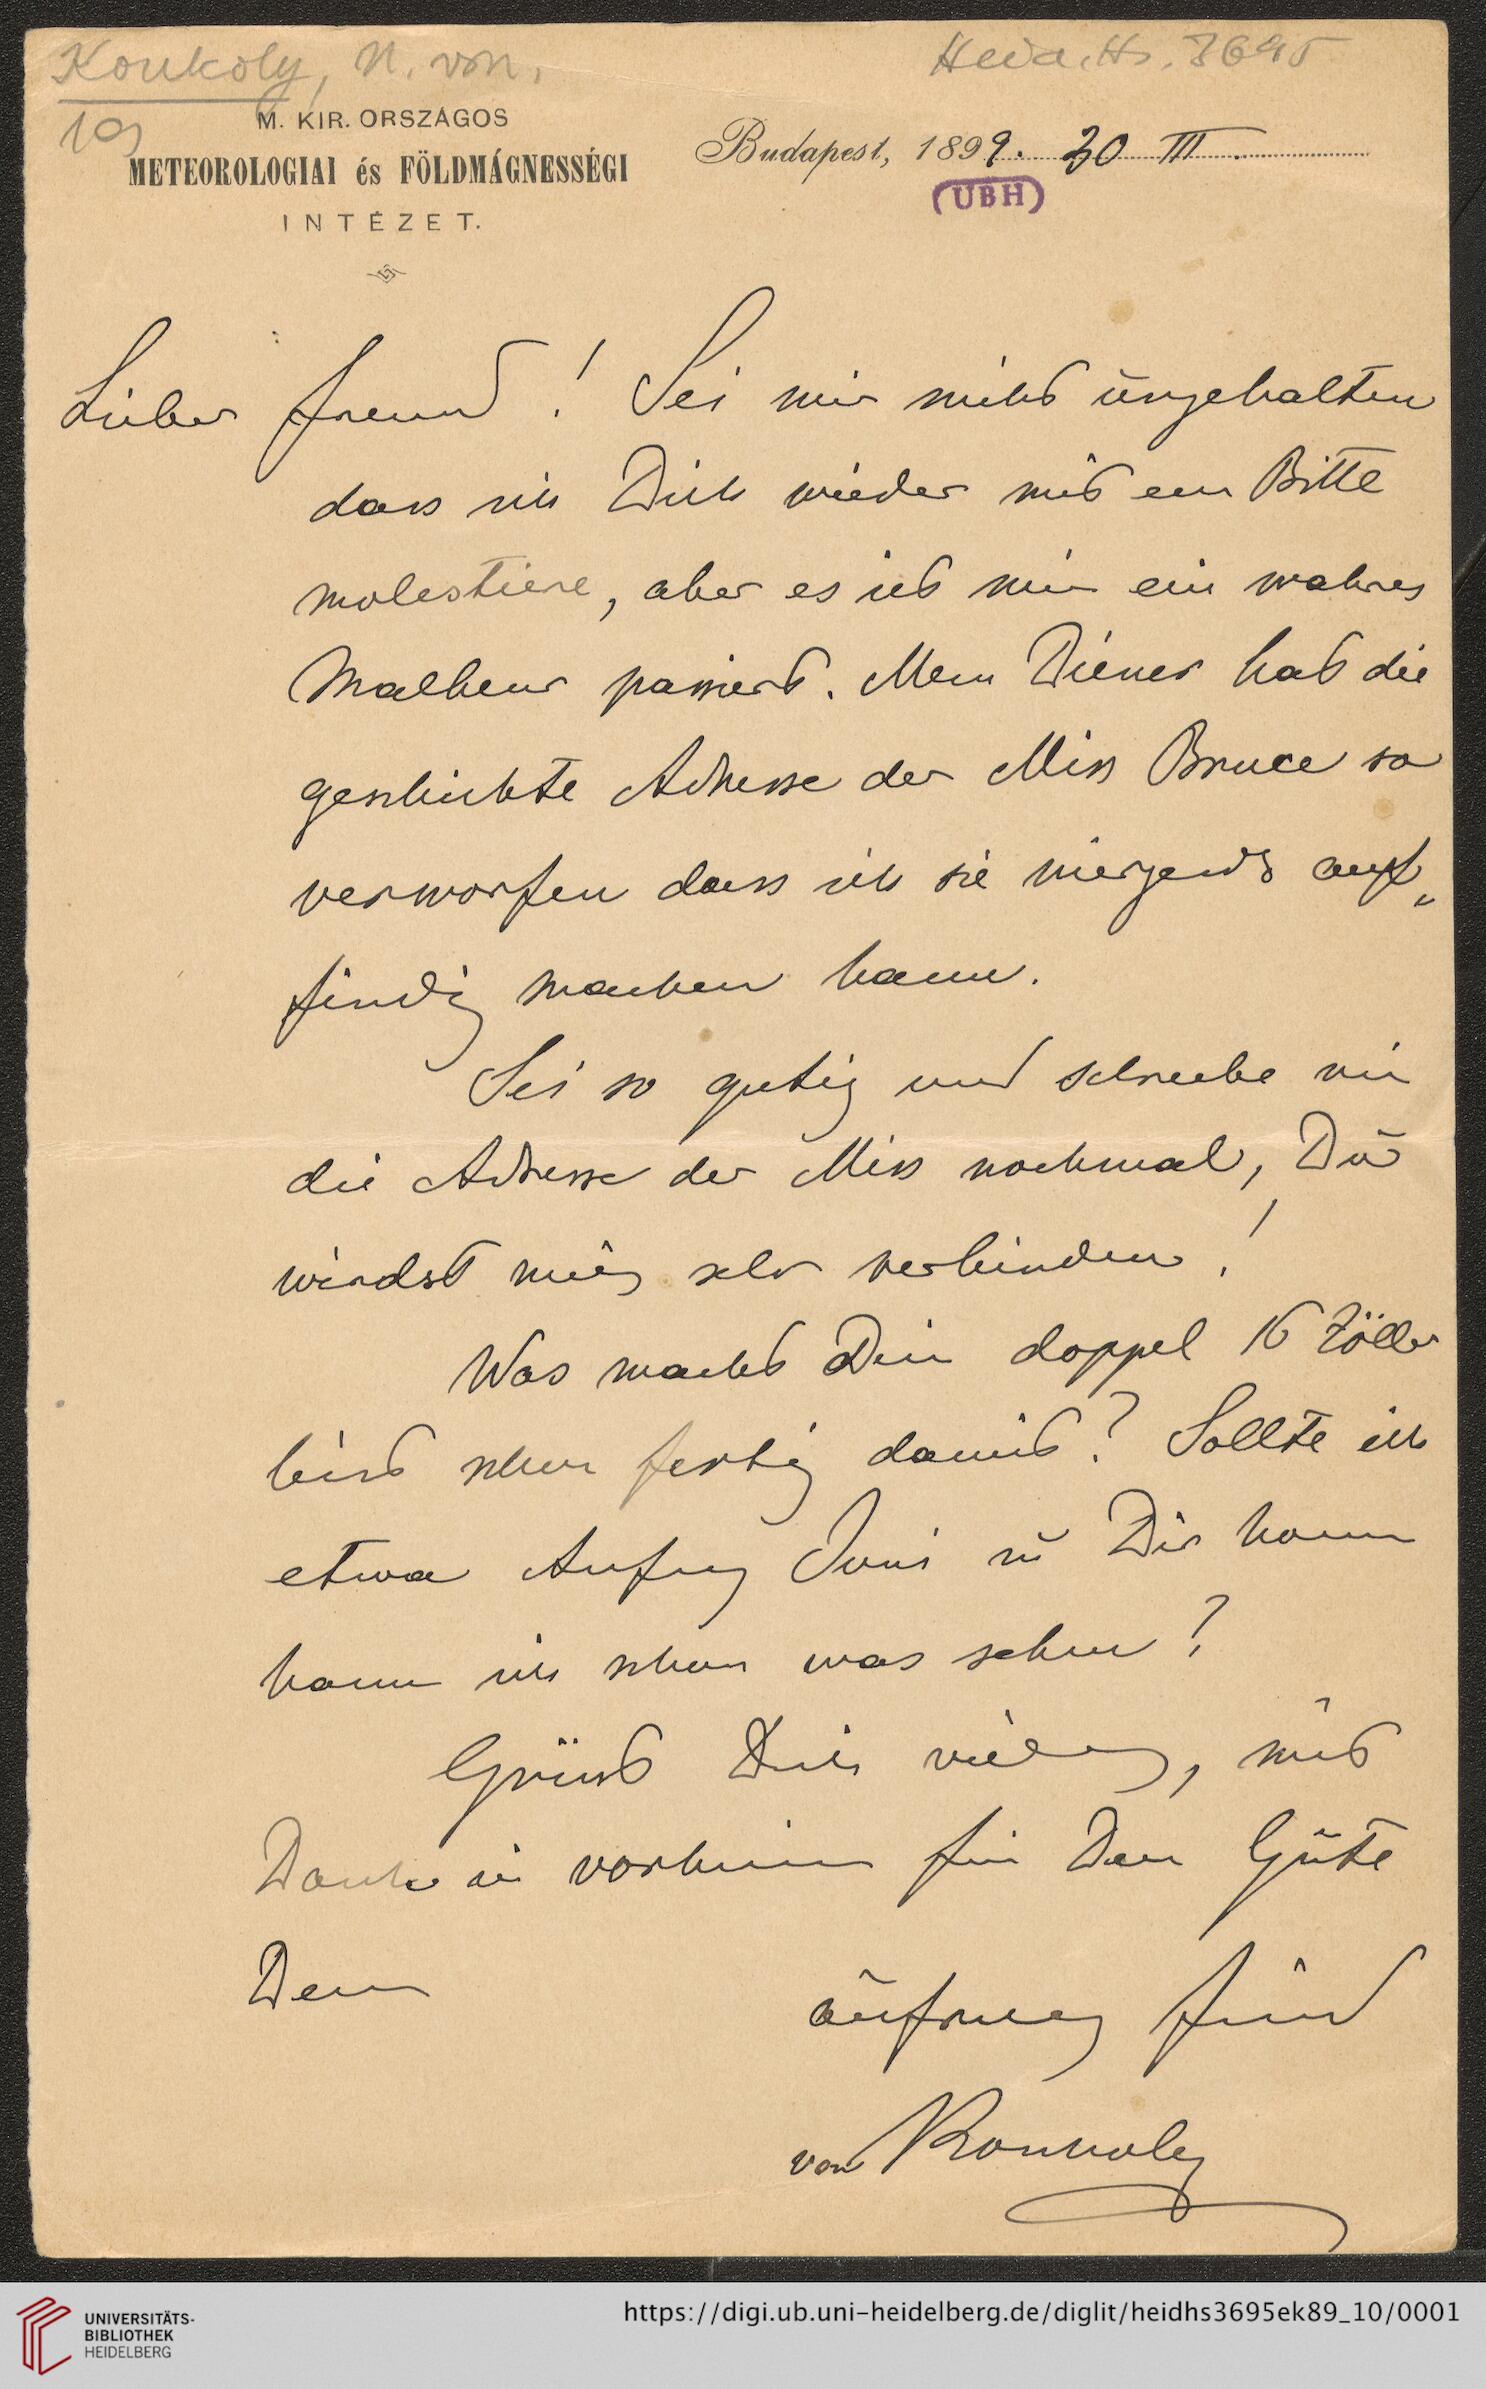 Konkoly, N. von.
Heid. Hs. 3695
10)
M. KIR. ORSZÁGOS
METEOROLOGIAI és FÖLDMÁGNESSÉGI
INTÉZET.
Budapest, 1899. 30 III.
(UBH)
Lieber Freund! Sei mir nicht ungehalten
dass ich Dich wieder mit ein Bitte
molestiere, aber es ist mir ein wahres
Malheur passiert. Mein Diener hat die
geschickte Adresse der Miss Bruce so
verworfen dass ich sie niergends auf„
findig machen kann.
Sei so gütig und schreibe mir
die Adresse der Miss nochmal, Du
wirdst mich sehr verbinden!
Was macht Dein doppel 16 Zöller
bist schon fertig damit? Sollte ich
etwa Anfang Juni zu Dir komm
kann ich schon was sehen?
Grüsst Dich, mit
Danke in vorhinein für Dein Güte
Dein
aufrichtig Freund
von Konkoly
UNIVERSITÄTS-
BIBLIOTHEK
HEIDELBERG
https://digi.ub.uni-heidelberg.de/diglit/heidhs3695ek89_10/0001